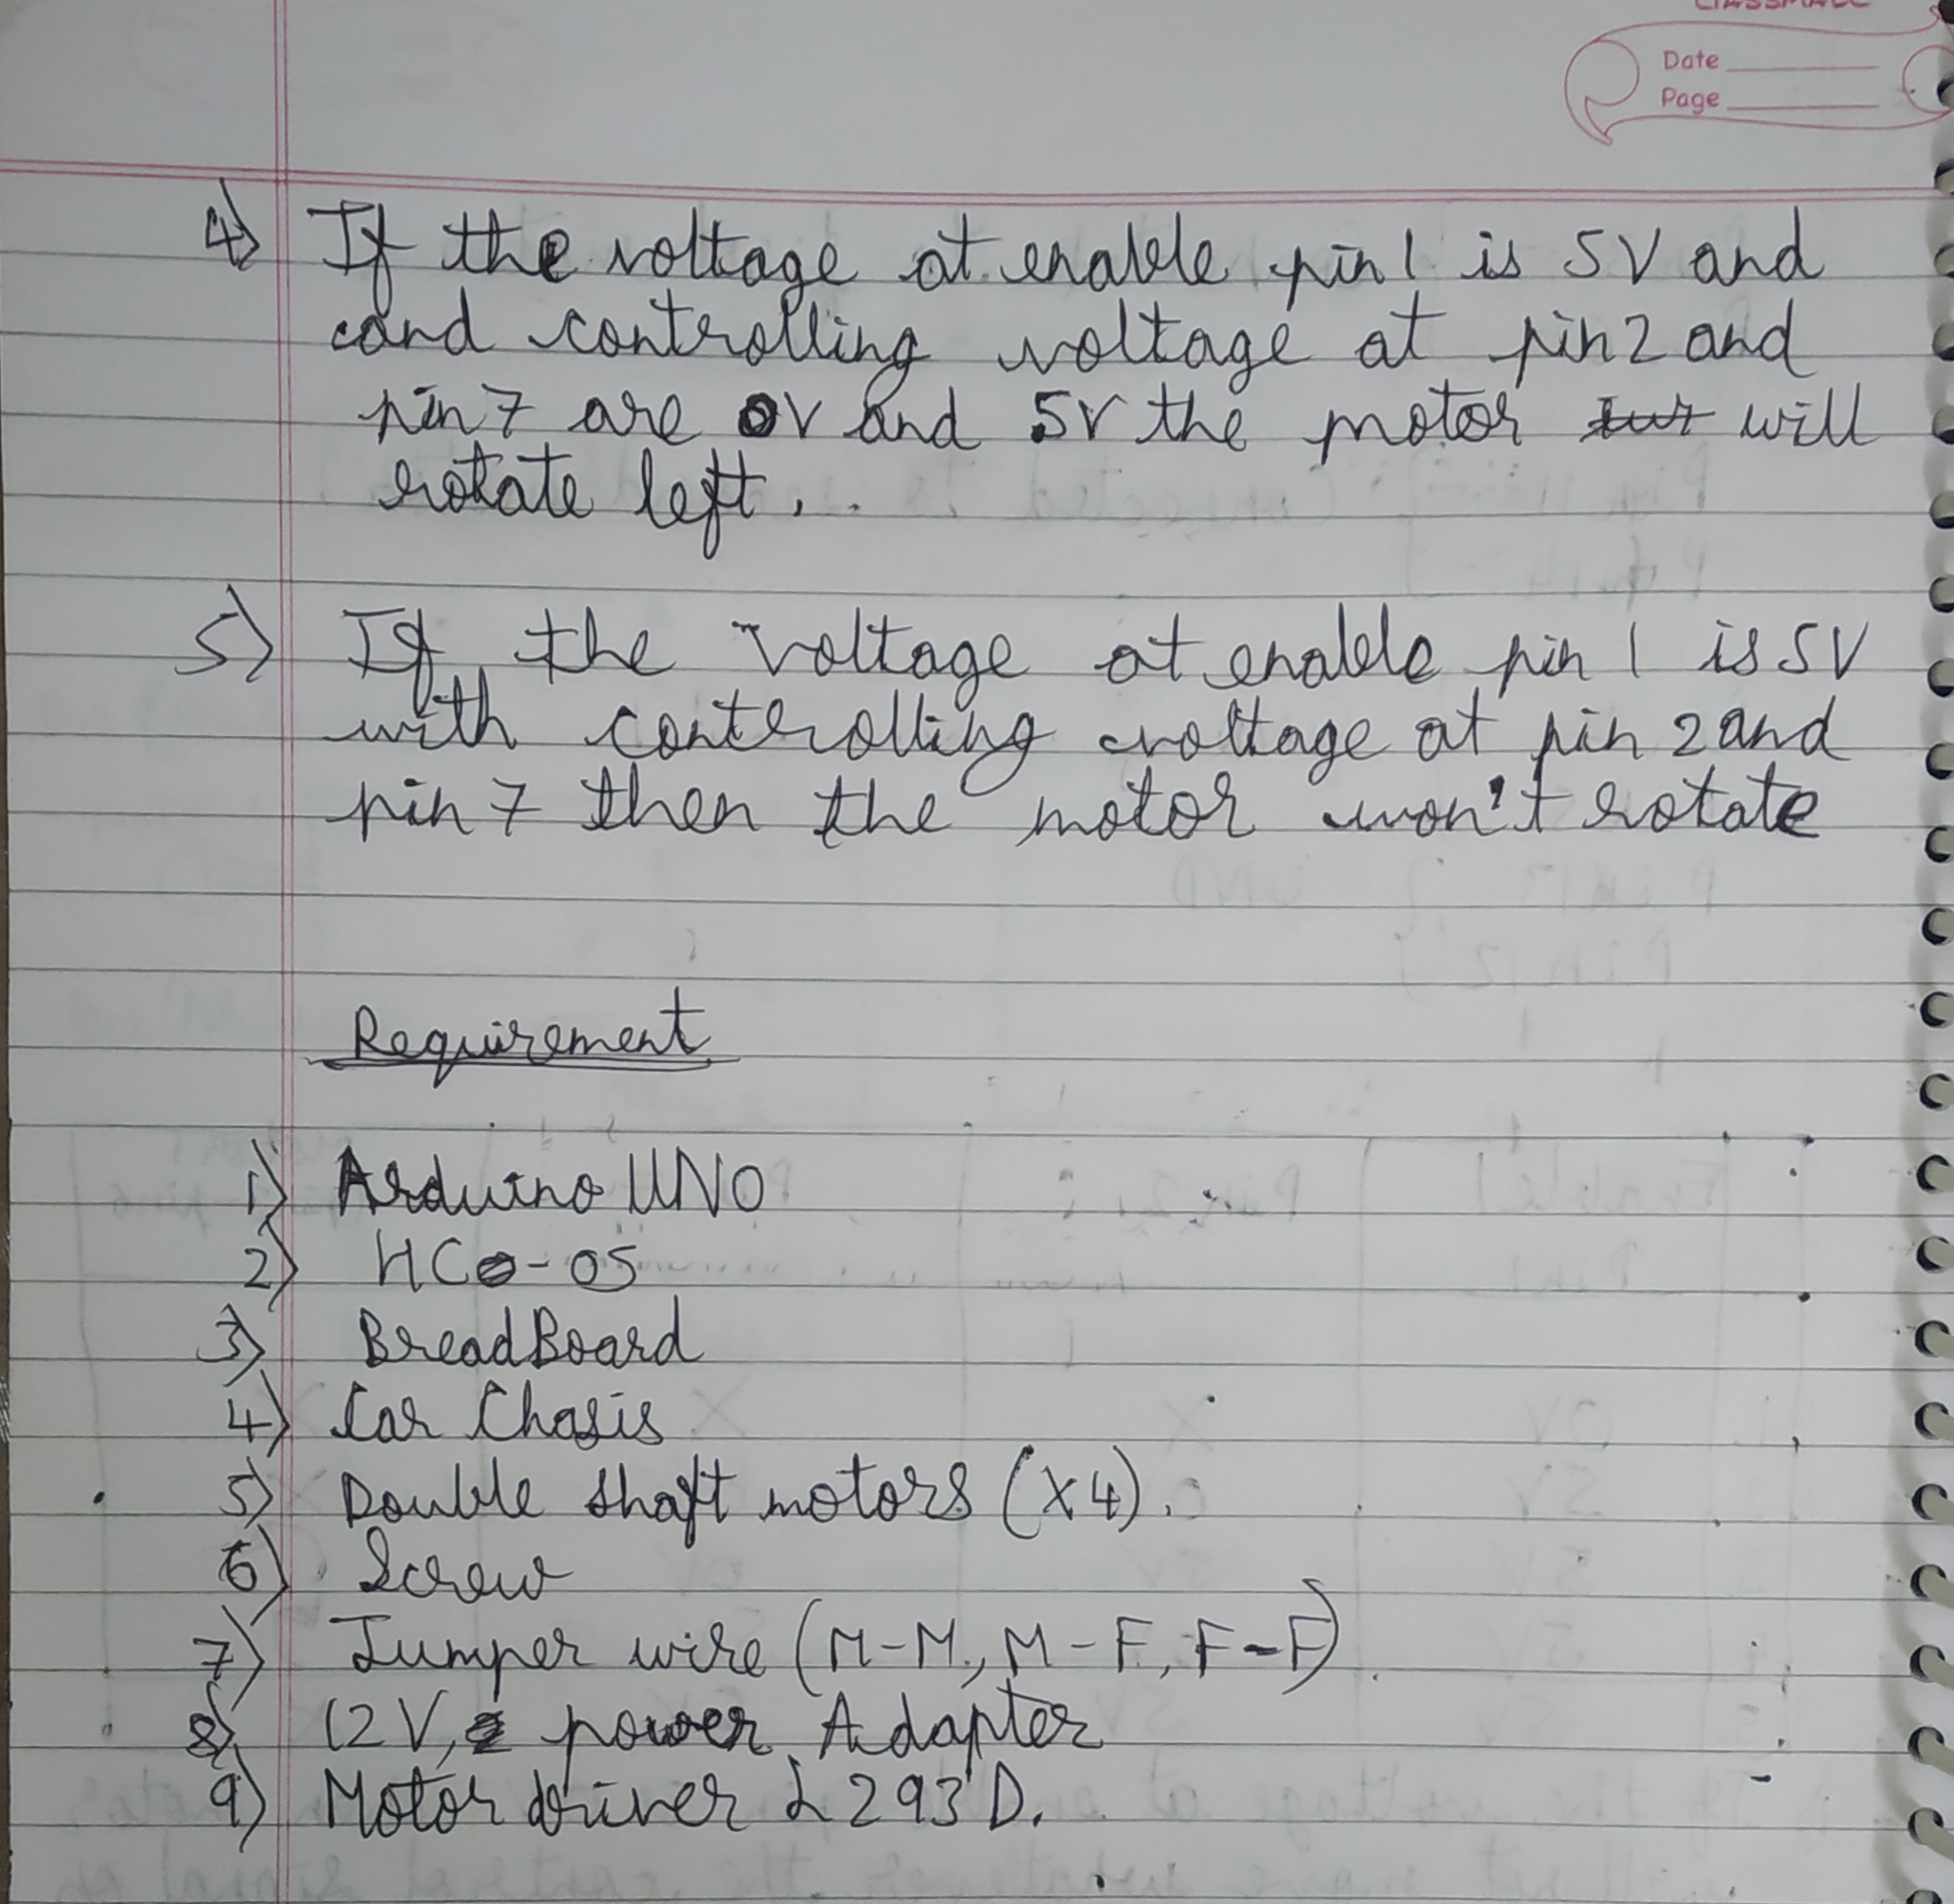 classmate
Date
Page
4) If the voltage at enable pin 1 is 5V and
and controlling voltage at pin 2 and
pin 7 are 0V and 5V the motor will
rotate left.
5) If the voltage at enable pin 1 is 5V
with controlling voltage at pin 2 and
pin 7 then the motor won't rotate
Requirement
1) Arduino UNO
2) HC-05
3) BreadBoard
4) Car Chasis
5) Double shaft motors (X4).
6) Screw
7) Jumper wire (M-M, M-F, F-F)
8) 12V, power Adapter
9) Motor driver L293D.